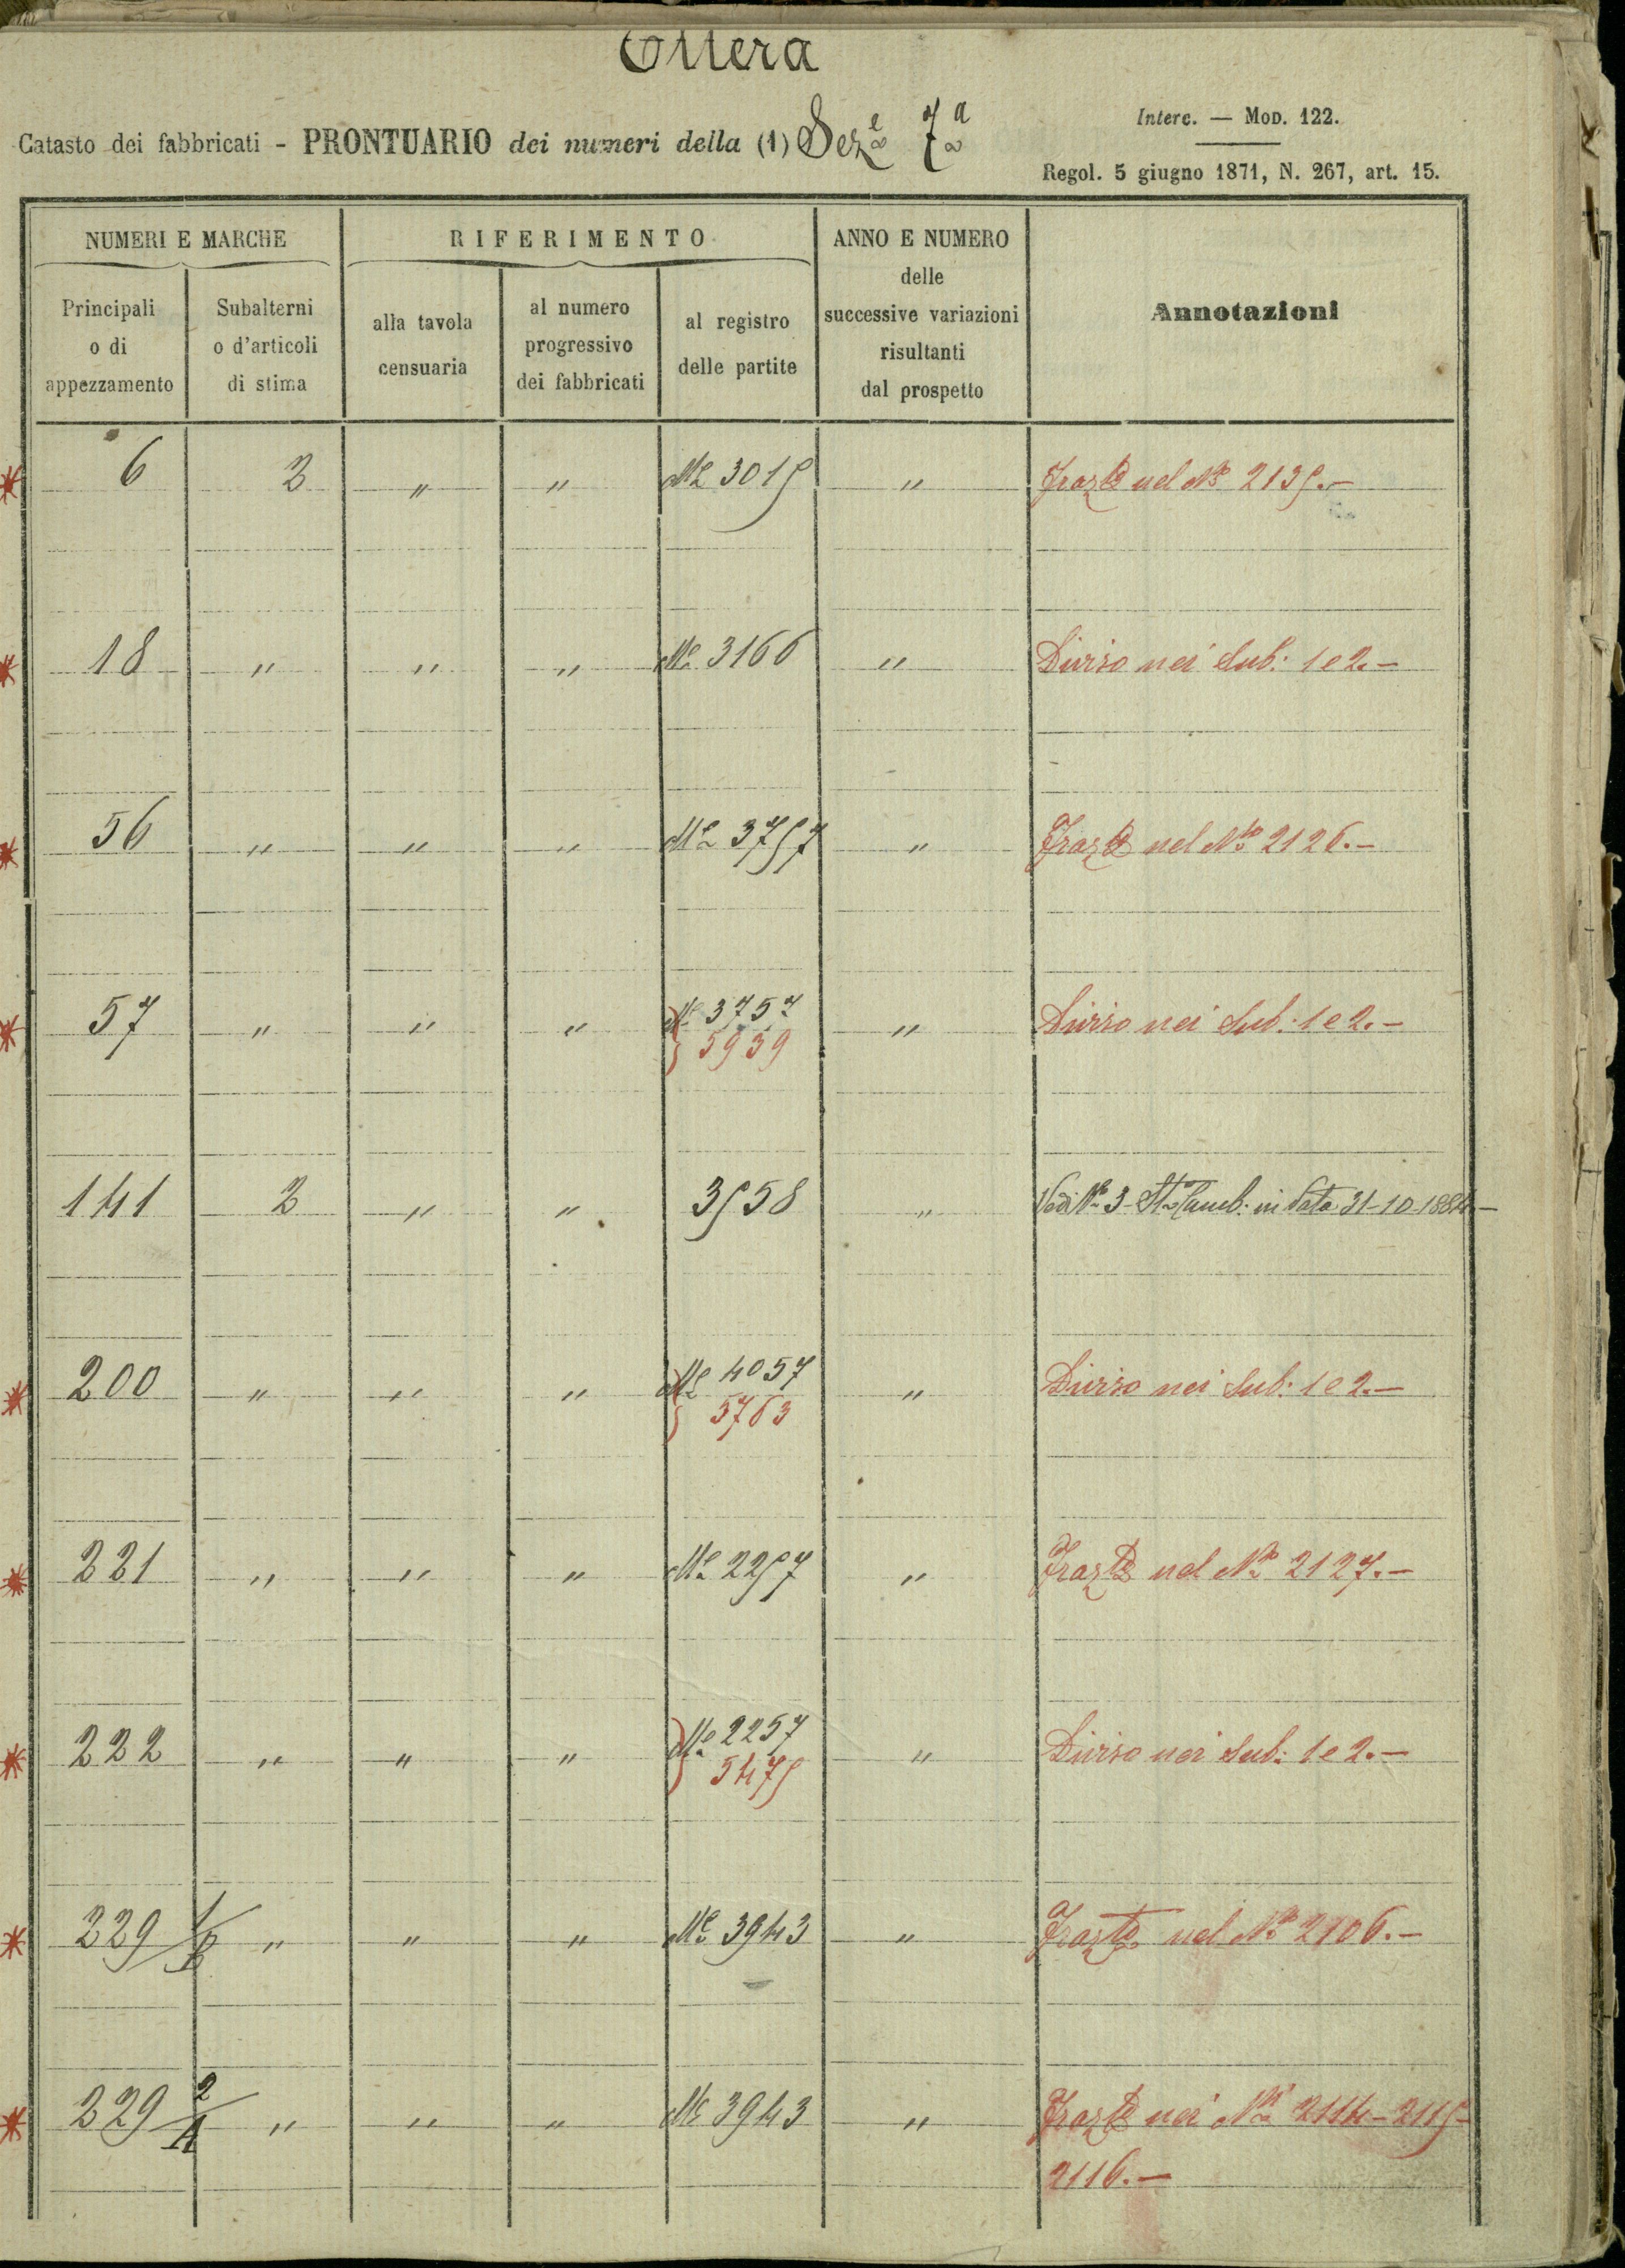 Ottera
Catasto dei fabbricati - PRONTUARIO dei numeri della (1) Sez.e 7a
Interc. — Mod. 122.
Regol. 5 giugno 1871, N. 267, art. 15.
NUMERI E MARCHE
RIFERIMENTO
ANNO E NUMERO
delle
successive variazioni
risultanti
dal prospetto
Annotazioni
Principali
o di
appezzamento
Subalterni
o d'articoli
di stima
alla tavola
censuaria
al numero
progressivo
dei fabbricati
al registro
delle partite
6 2 " " Me 3015 " Fraz.to nel No 2135.-
18 " " " Me 3166 " Diviso nei Sub: 1 e 2.-
56 " " " Me 3757 " Fraz.to nel No 2126.-
57 " " " Me 3757 " Diviso nei Sub: 1 e 2.-
5939
141 2 " " 3558 " Vedi No 3 - Sto Camb: in data 31-10-1884.-
200 " " " Me 4057 " Diviso nei Sub: 1 e 2.-
5763
221 " " " Me 2257 " Fraz.to nel No 2127.-
222 " " " Me 2257 " Diviso nei Sub: 1 e 2.-
5475
229 " " " Me 3943 " Fraz.to nel No 2106.-
229 2/1 " " " Me 3943 " Fraz.to nei Ni 2114-2115-
2116.-